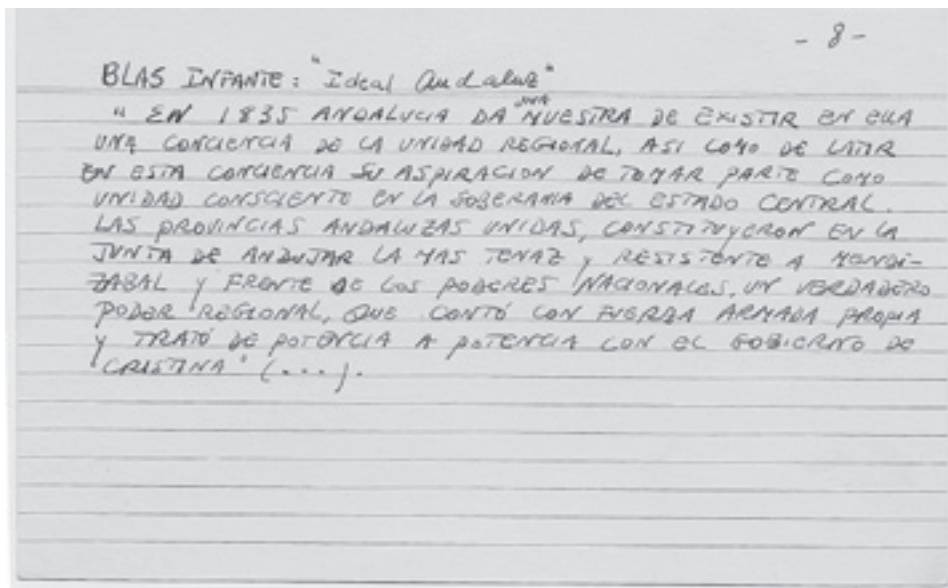 - 8 -
BLAS INFANTE: "Ideal Andaluz"
" EN 1835 ANDALUCIA DA UNA MUESTRA DE EXISTIR EN ELLA
UNA CONCIENCIA DE LA UNIDAD REGIONAL, ASI COMO DE LATIR
EN ESTA CONCIENCIA SU ASPIRACION DE TOMAR PARTE COMO
UNIDAD CONSCIENTE EN LA SOBERANIA DEL ESTADO CENTRAL.
LAS PROVINCIAS ANDALUZAS UNIDAS, CONSTITUYERON EN LA
JUNTA DE ANDUJAR LA MAS TENAZ Y RESISTENTE A MENDI-
ZABAL Y FRENTE DE LOS PODERES NACIONALES, UN VERDADERO
PODER REGIONAL, QUE CONTÓ CON FUERZA ARMADA PROPIA
Y TRATÓ DE POTENCIA A POTENCIA CON EL GOBIERNO DE
CRISTINA" (...).